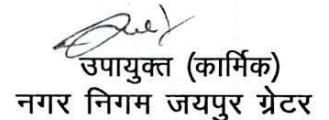 उपायुक्त (कार्मिक)
नगर निगम जयपुर ग्रेटर